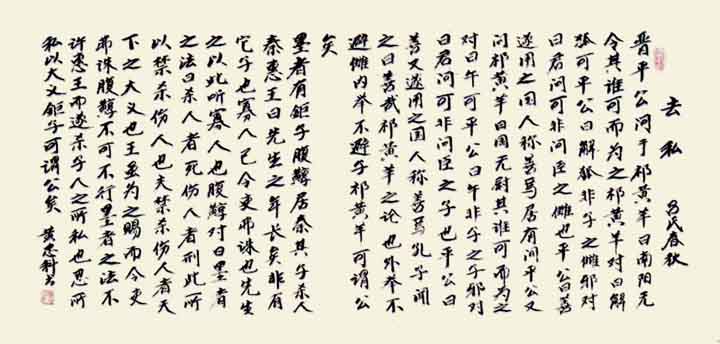 去私 吕氏春秋
晋平公问于祁黄羊曰南阳无
令其谁可而为之祁黄羊对曰解
狐可平公曰解狐非子之雠邪对
曰君问可非问臣之雠也平公曰善
遂用之国人称善焉居有间平公又
问祁黄羊曰国无尉其谁可而为之
对曰午可平公曰午非子之子邪对
曰君问可非问臣之子也平公曰
善又遂用之国人称善焉孔子闻
之曰善哉祁黄羊之论也外举不
避雠内举不避子祁黄羊可谓公
矣
墨者有钜子腹䵍居秦其子杀人
秦惠王曰先生之年长矣非有
它子也寡人已令吏弗诛也先生
之以此听寡人也腹䵍对曰墨者
之法曰杀人者死伤人者刑此所
以禁杀伤人也夫禁杀伤人者天
下之大义也王虽为之赐而令吏
弗诛腹䵍不可不行墨者之法不
许惠王而遂杀子人之所私也忍所
私以大义钜子可谓公矣 黄忠科书